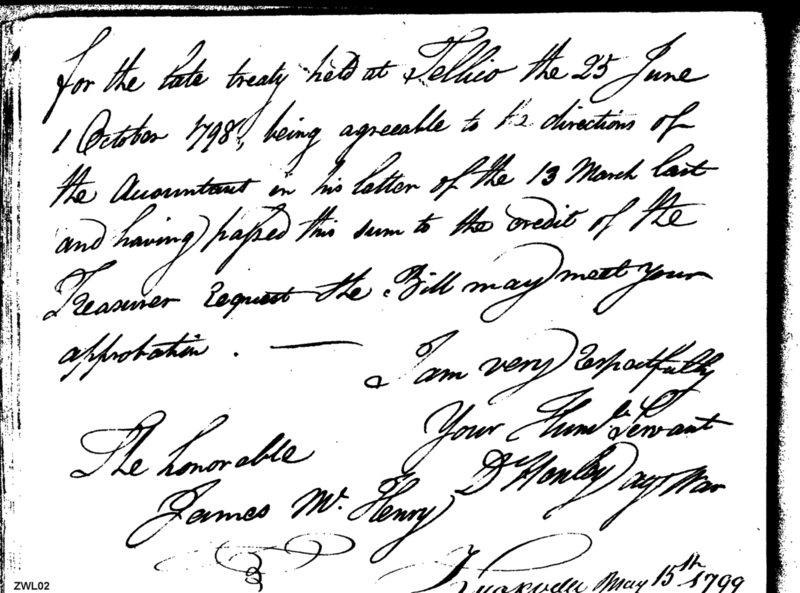 for the late treaty held at Tellico the 25 June
1 October 1798, being agreeable to the directions of
the Accountant in his letter of the 13 March last
and having passed this sum to the credit of the
Treasurer request the Bill may meet your
approbation. —
I am very respectfully
Your Humb. Servant
Dd Henley agt War
The honorable
James Mc. Henry
Knoxville May 15th 1799
ZWL02